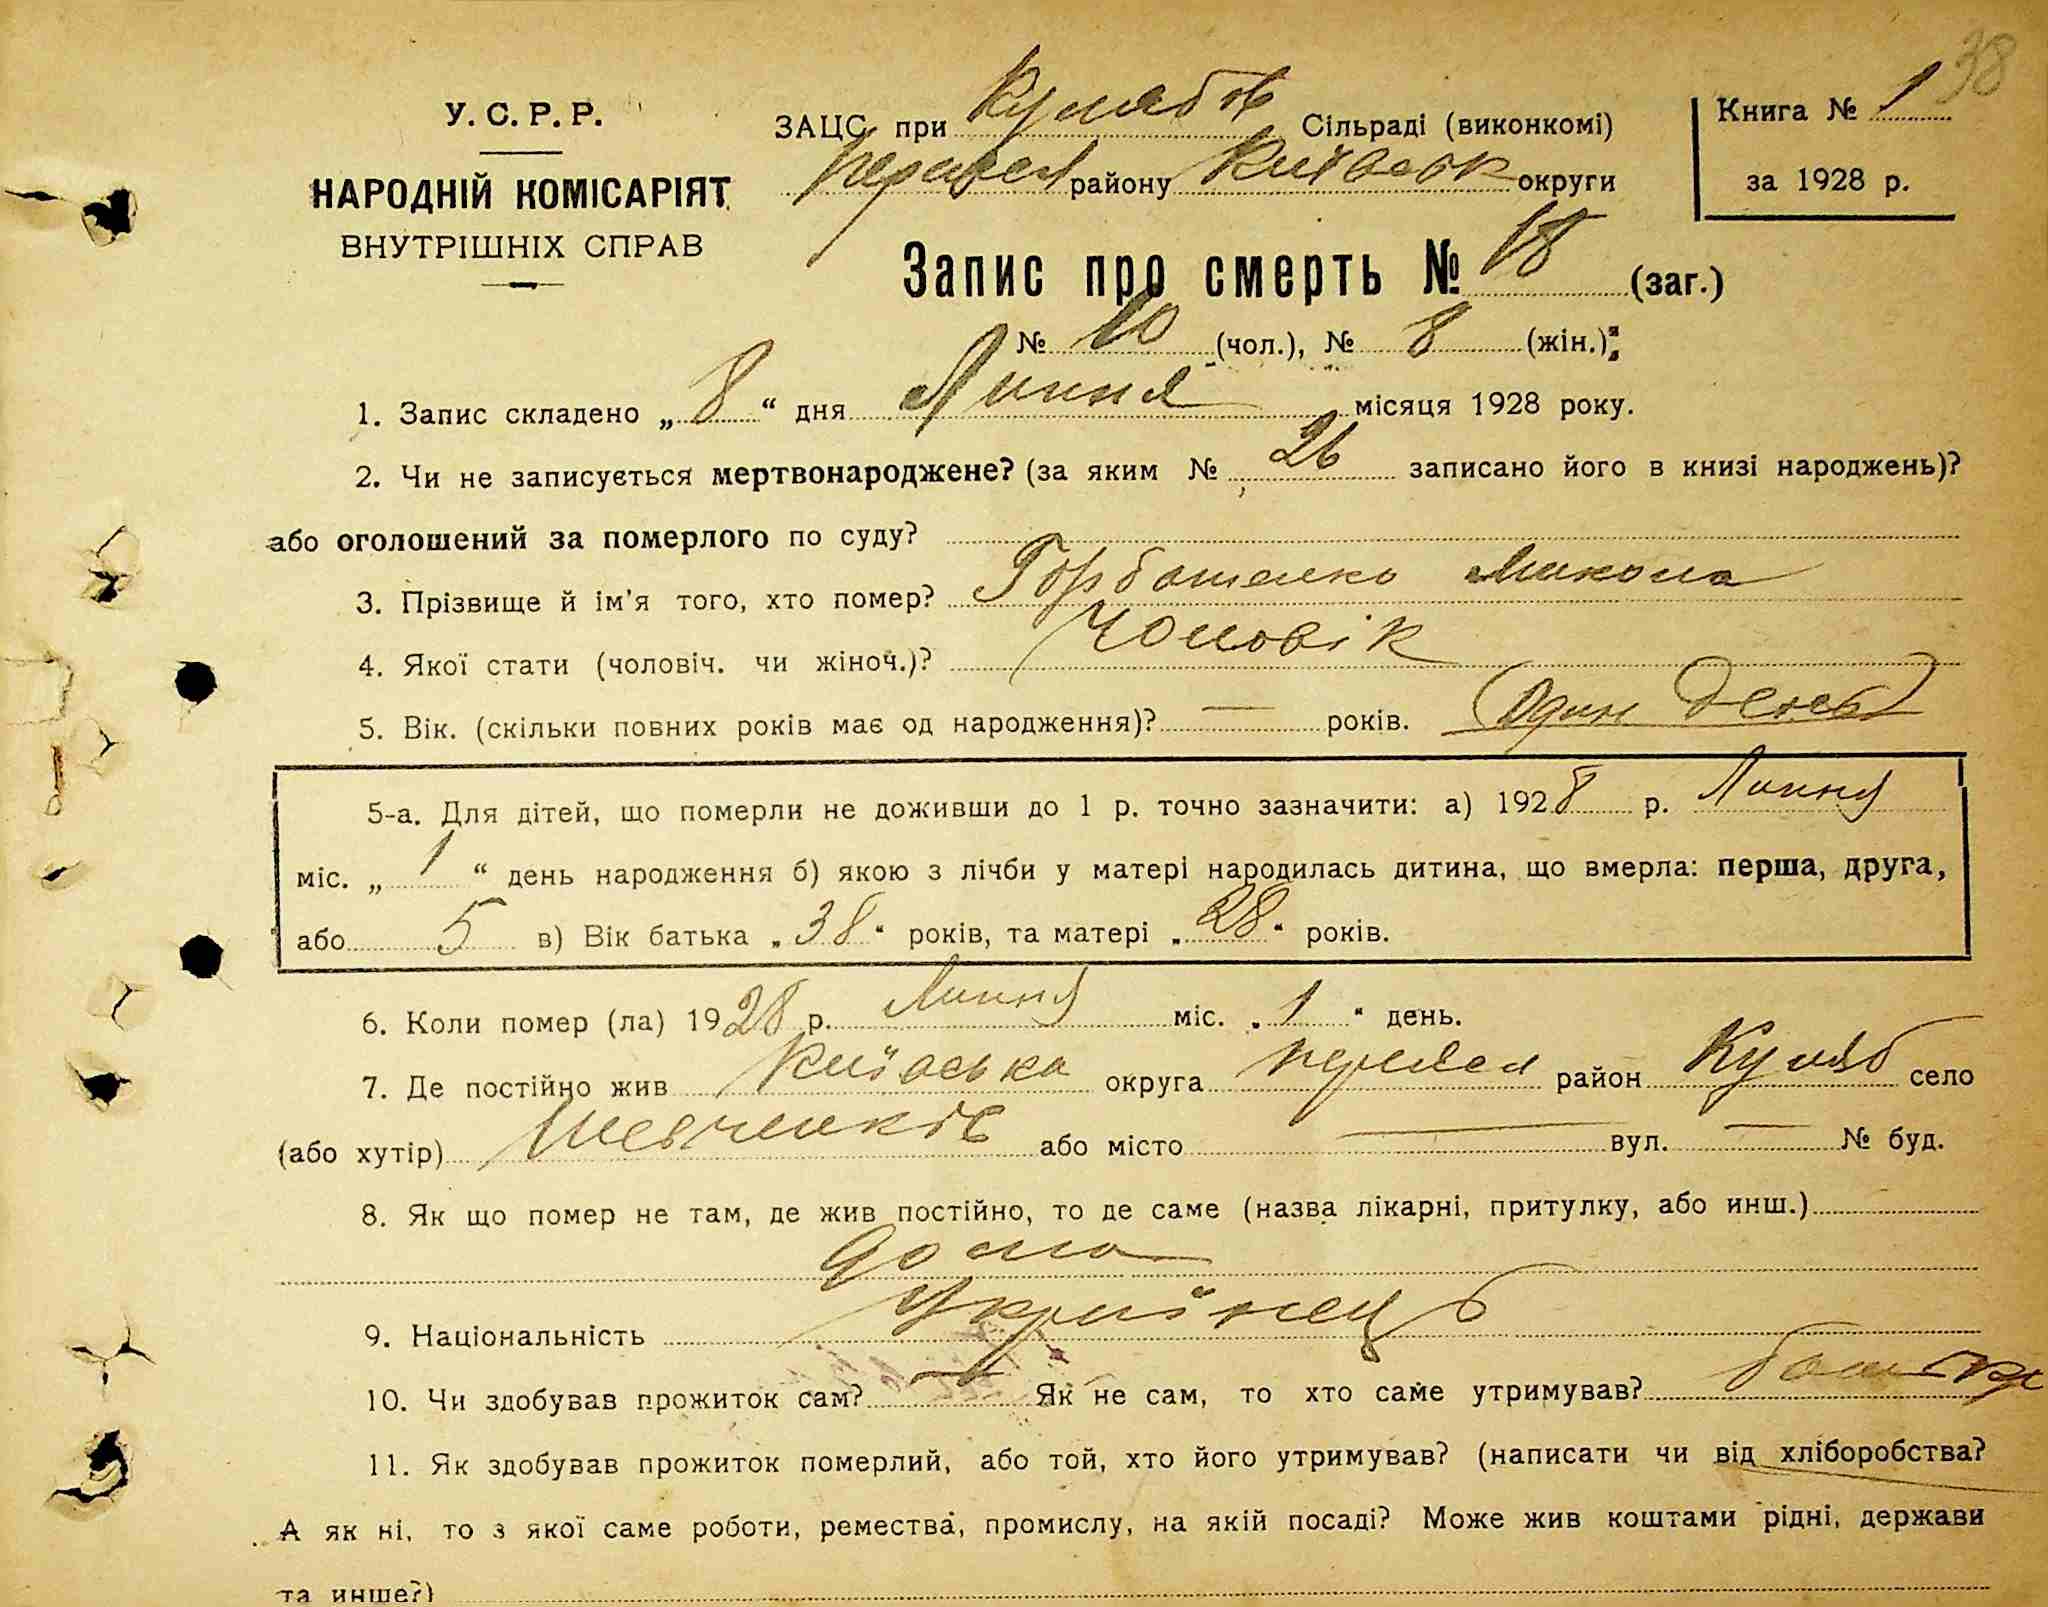 38
У. С. Р. Р.
НАРОДНІЙ КОМІСАРІЯТ
ВНУТРІШНІХ СПРАВ
ЗАЦС при Кулябов Сільраді (виконкомі)
Переясл району Київськ округи
Книга № 1
за 1928 р.
Запис про смерть № 18 (заг.)
№ 10 (чол.), № 8 (жін.):
1. Запис складено „ 8 “ дня Липня місяця 1928 року.
2. Чи не записується мертвонароджене? (за яким № 26 записано його в книзі народжень)?
або оголошений за померлого по суду?
3. Прізвище й ім'я того, хто помер? Горбатенко Микола
4. Якої стати (чоловіч. чи жіноч.)? Чоловік
5. Вік. (скільки повних років має од народження)? — років. Один день
5-а. Для дітей, що померли не доживши до 1 р. точно зазначити: а) 1928 р. Липня
міс. „ 1 “ день народження б) якою з лічби у матері народилась дитина, що вмерла: перша, друга,
або 5 в) Вік батька „ 38 “ років, та матері „ 28 “ років.
6. Коли помер (ла) 1928 р. Липня міс. „ 1 “ день.
7. Де постійно жив Київська округа Переясл район Куляб село
(або хутір) Шевченків або місто — вул. — № буд.
8. Як що помер не там, де жив постійно, то де саме (назва лікарні, притулку, або инш.)
дома
9. Національність Українець
10. Чи здобував прожиток сам? — Як не сам, то хто саме утримував? батьки
11. Як здобував прожиток померлий, або той, хто його утримував? (написати чи від хліборобства?
А як ні, то з якої саме роботи, ремества, промислу, на якій посаді? Може жив коштами рідні, держави
та инше?)